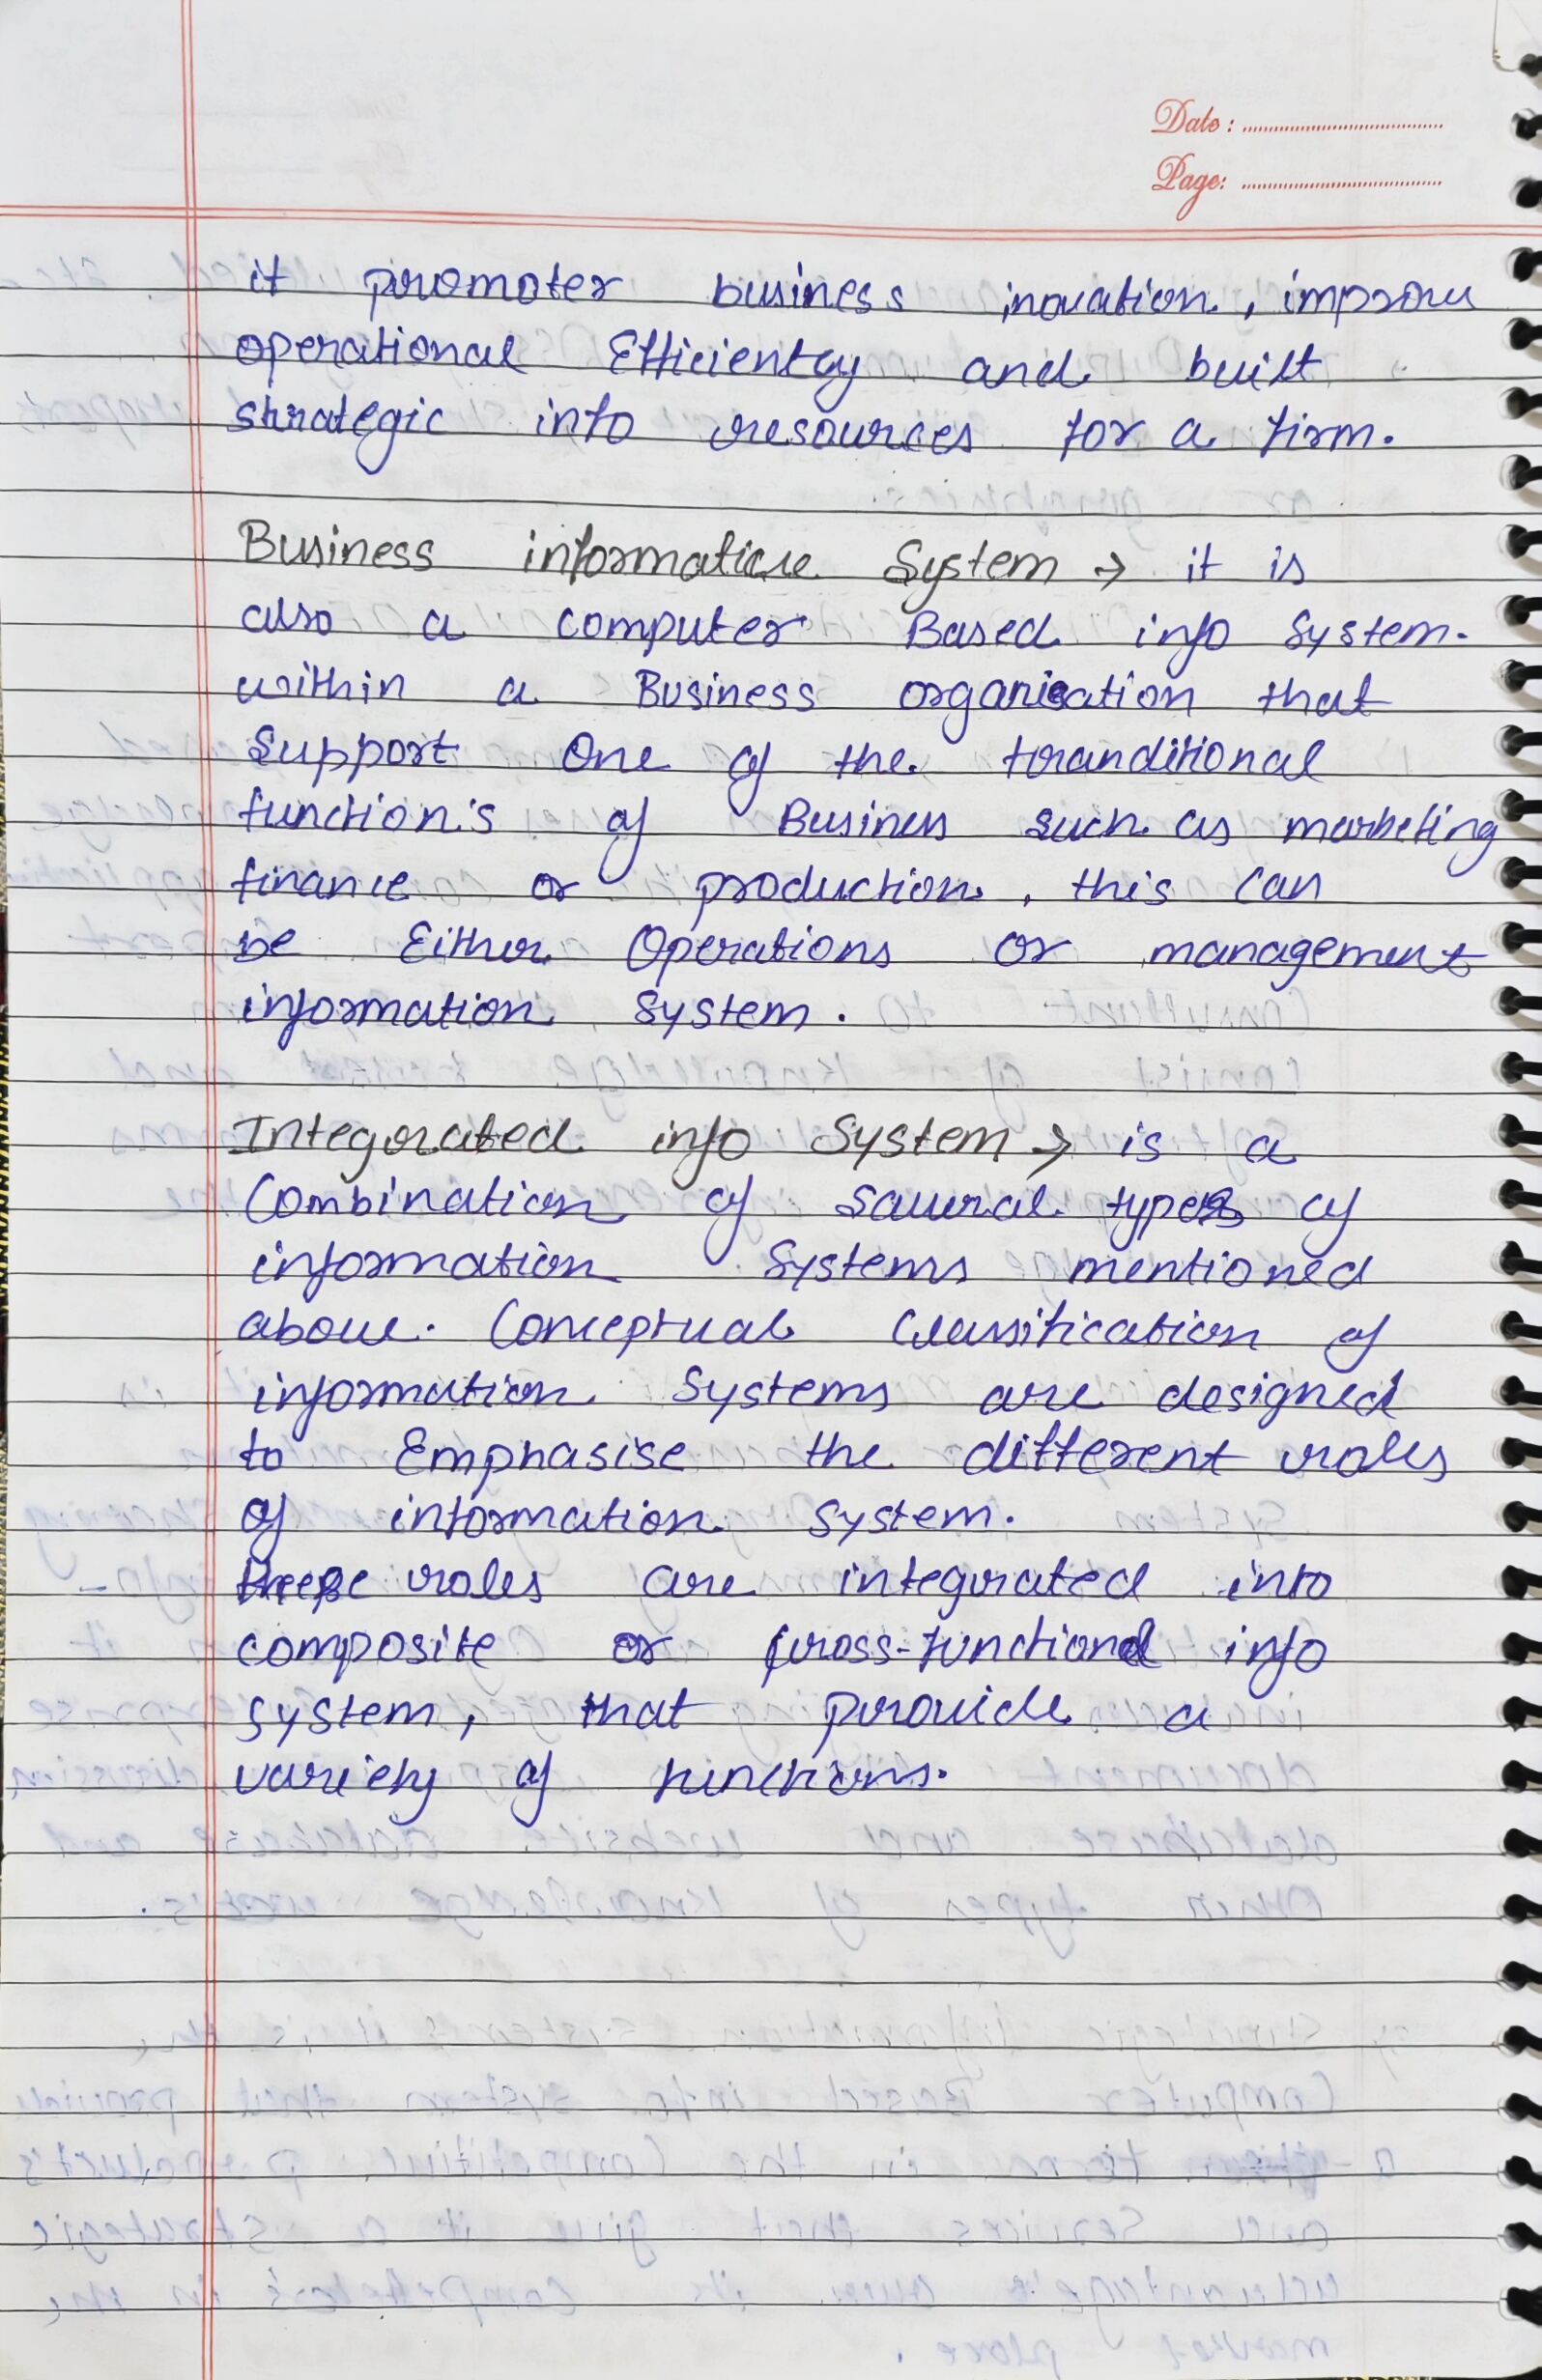 Date :
Page:
it promoter business inovation, improve
operational Efficientcy and built
strategic info resources for a firm.
Business informative System → it is
also a computer Based info System.
within a Business organisation that
Support One of the tranditional
function's of Business such as marketing
finance or production, this can
be Either Operations or management
information System.
Integrated info System → is a
Combination of saveral types of
information Systems mentioned
above. Conceptual Classification of
information Systems are designed
to Emphasise the different roles
of information System.
these roles are integrated into
composite or cross-functional info
system, that provide a
variety of functions.